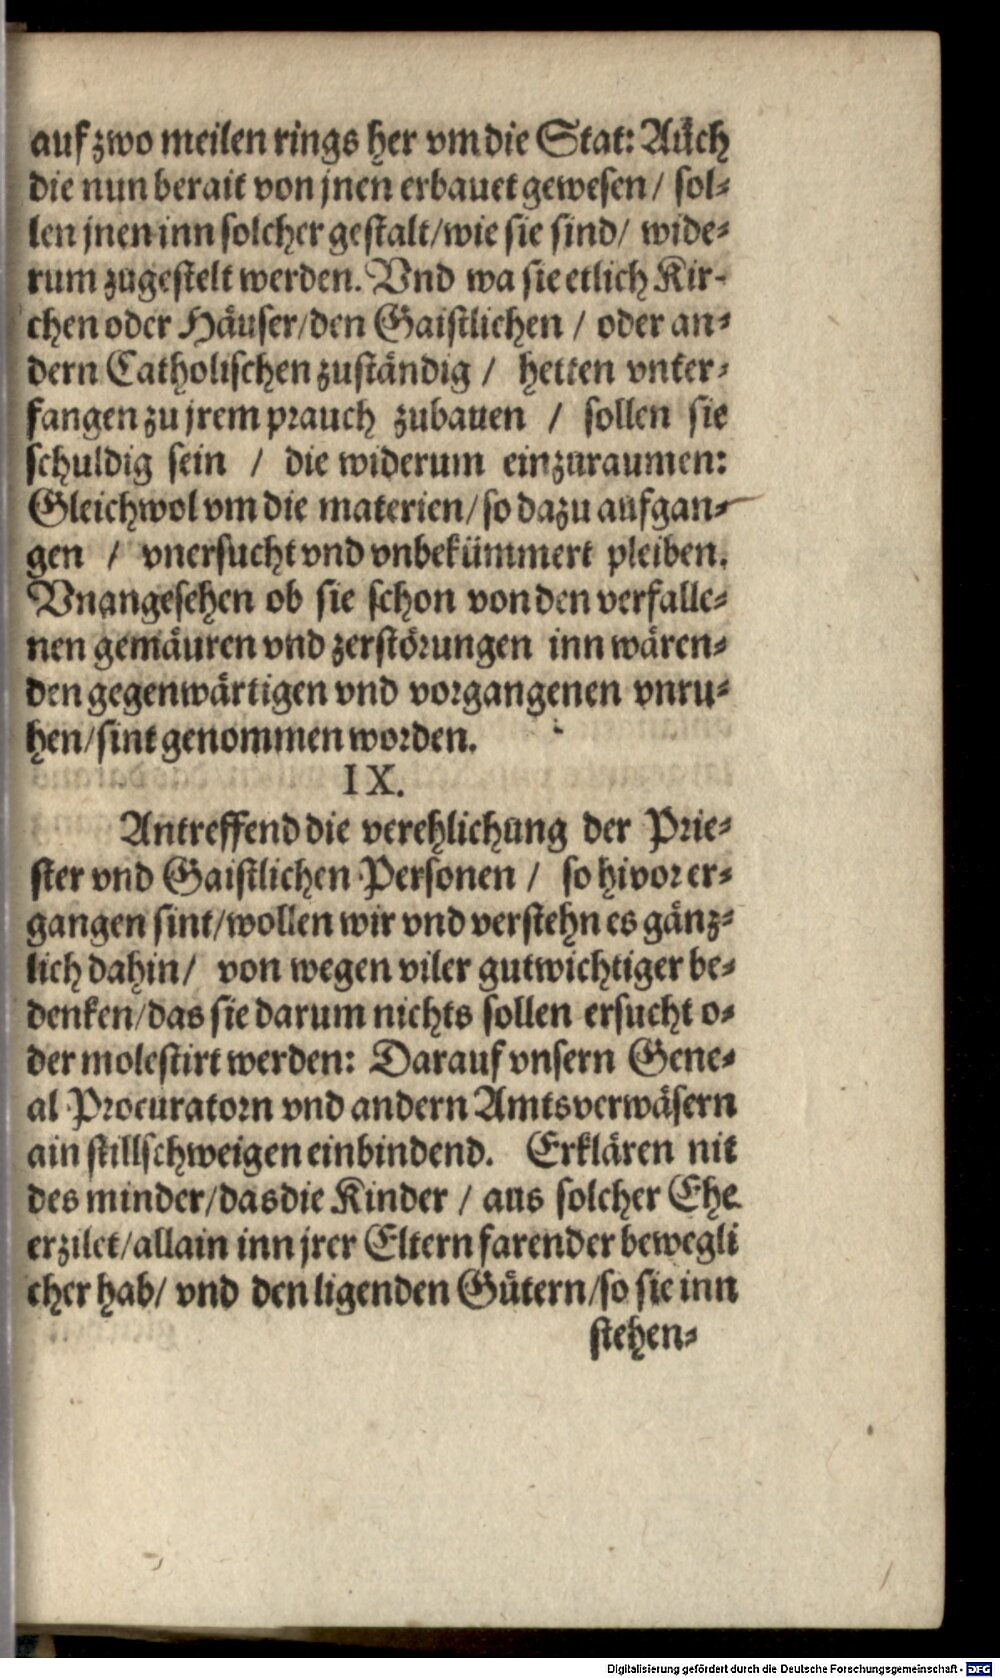 auf zwo meilen rings her vm die Stat: Aůch
die nun berait von jnen erbauet gewesen / sol-
len jnen inn solcher gestalt/wie sie sind/ wide-
rum zugestelt werden. Vnd wa sie etlich Kir-
chen oder Häuser/den Gaistlichen / oder an-
dern Catholischen zuständig / hetten vnter-
fangen zu jrem prauch zubauen / sollen sie
schuldig sein / die widerum einzuraumen:
Gleichwol vm die materien/so dazu aufgan-
gen / vnersucht vnd vnbekümmert pleiben.
Vnangesehen ob sie schon von den verfalle-
nen gemäuren vnd zerstörungen inn wären-
den gegenwärtigen vnd vorgangenen vnru-
hen/sint genommen worden.
IX.
Antreffend die verehlichung der Prie-
ster vnd Gaistlichen Personen / so hivor er-
gangen sint/wollen wir vnd verstehn es gänz-
lich dahin/ von wegen viler gutwichtiger be-
denken/das sie darum nichts sollen ersucht o-
der molestirt werden: Darauf vnsern Gene-
al Procuratorn vnd andern Amtsverwäsern
ain stillschweigen einbindend. Erklären nit
des minder/das die Kinder / aus solcher Ehe
erzilet/allain inn jrer Eltern farender bewegli
cher hab/ vnd den ligenden Gütern/so sie inn
stehen-
Digitalisierung gefördert durch die Deutsche Forschungsgemeinschaft - DFG